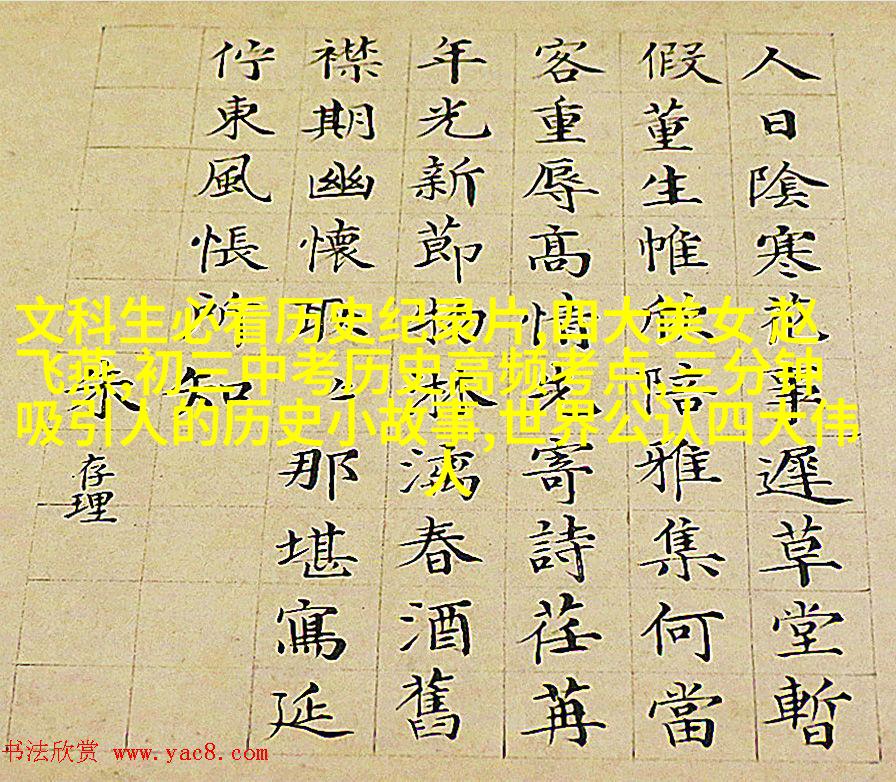 人日陰寒花事遲草堂暫
假董生帷欣陪雅集何當
客重辱高情先寄詩荏苒
年光新節物淋漓春酒舊
襟期幽懷耿〻那堪寫延
佇東風悵所知
朱存理
文科生必看历史纪录片,四大美女 赵
飞燕,初三中考历史高频考点,三分钟
吸引人的历史小故事,世界公认四大伟
人
书法欣赏 www.yac8.com